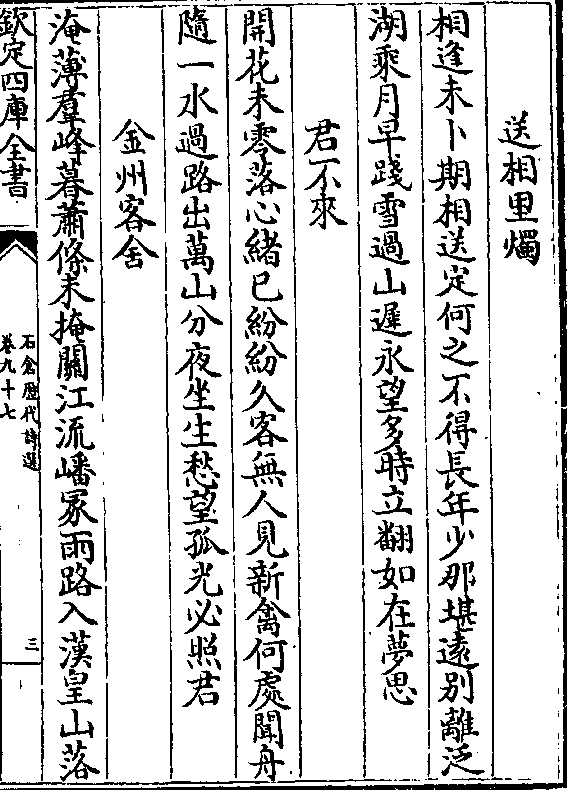 送相里燭
相逢未卜期相送定何之不得長年少那堪遠别離泛
湖乘月早踐雪過山遲永望多時立翻如在夢思
君不來
開花未零落心緒已紛紛久客無人見新禽何處聞舟
隨一水過路出萬山分夜坐生愁望孤光必照君
金州客舍
淹薄羣峰暮蕭條未掩關江流嶓冢雨路入漢皇山落
欽定四庫全書
石倉歷代詩選
卷九十七
三